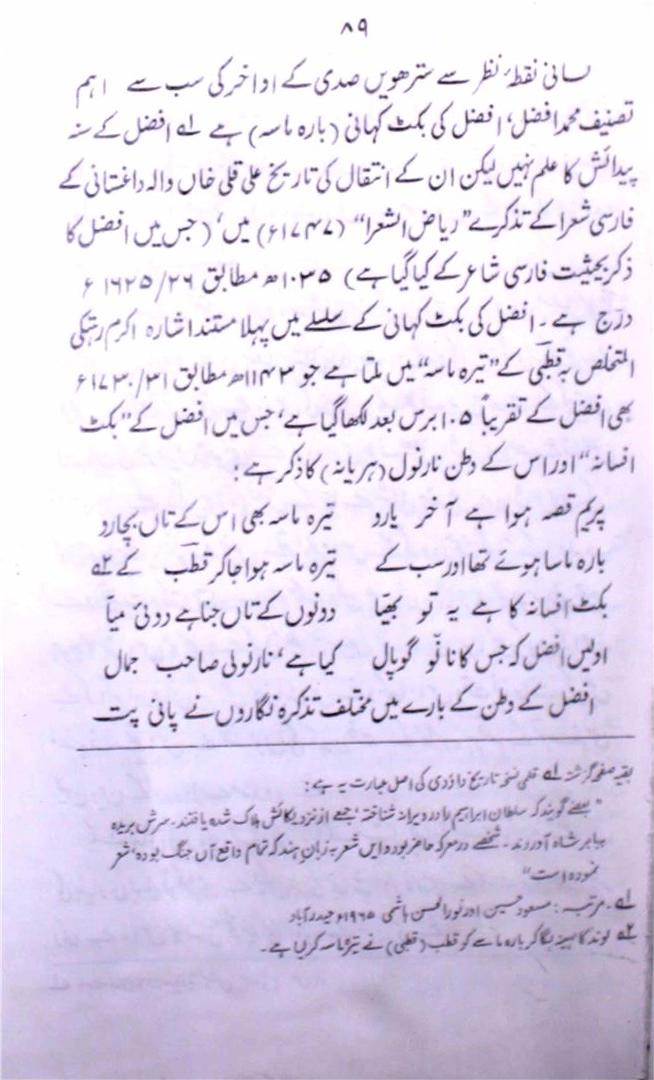 ۸۹
لسانی نقطۂ نظر سے سترھویں صدی کے اواخر کی سب سے اہم
تصنیف محمد افضل، افضل کی بکٹ کہانی (بارہ ماسہ) ہے ۱ے افضل کے سنہ
پیدائش کا علم نہیں لیکن ان کے انتقال کی تاریخ علی قلی خاں والہ داغستانی کے
فارسی شعرا کے تذکرے ”ریاض الشعرا“ (۱۷۴۷ء) میں، (جس میں افضل کا
ذکر بحیثیت فارسی شاعر کے کیا گیا ہے) ۱۰۳۵ھ مطابق ۲۶/۱۶۲۵ء
درج ہے۔ افضل کی بکٹ کہانی کے سلسلے میں پہلا مستند اشارہ اکرم رہتکی
المتخلص بہ قطبی کے ”تیرہ ماسہ“ میں ملتا ہے جو ۱۱۴۳ھ مطابق ۳۱/۱۷۳۰ء
بھی افضل کے تقریباً ۱۰۵ برس بعد لکھا گیا ہے، جس میں افضل کے ”بکٹ
افسانہ“ اور اس کے وطن نارنول (ہریانہ) کا ذکر ہے:
پریم قصہ ہوا ہے آخر یارو تیرہ ماسہ بھی اس کے تاں بچارو
بارہ ماسا ہوئے تھا اور سب کے تیرہ ماسہ ہوا جاکر قطب کے ۲ے
بکٹ افسانہ کا ہے یہ تو بھیا دونوں کے تاں جنا ہے دوئی میا
اولیں افضل کہ جس کا نانو گوپال کیا ہے، نارنولی صاحب جمال
افضل کے وطن کے بارے میں مختلف تذکرہ نگاروں نے پانی پت
بقیہ صفحہ گزشتہ ۱ے قلمی نسخہ تاریخ داؤدی کی اصل عبارت یہ ہے:
”بعضے گویند کہ سلطان ابراہیم را در ویرانہ شناختہ، جمعے از نزدیکانش ہلاک شدہ یافتند۔ سرش بریدہ
بہ بابر شاہ آوردند۔ شخصے در معرکہ حاضر بود و ایں شعر بہ زبان ہند کہ تمام واقع آں جنگ بودہ، شعر
نمودہ است“
۱ے۔ مرتب: مسعود حسین اور نور الحسن ہاشمی ۱۹۶۵ء حیدرآباد
۲ے لوند کا مہینہ لگا کر بارہ ماسے کو قطب (قطبی) نے تیرہ ماسہ کر لیا ہے۔